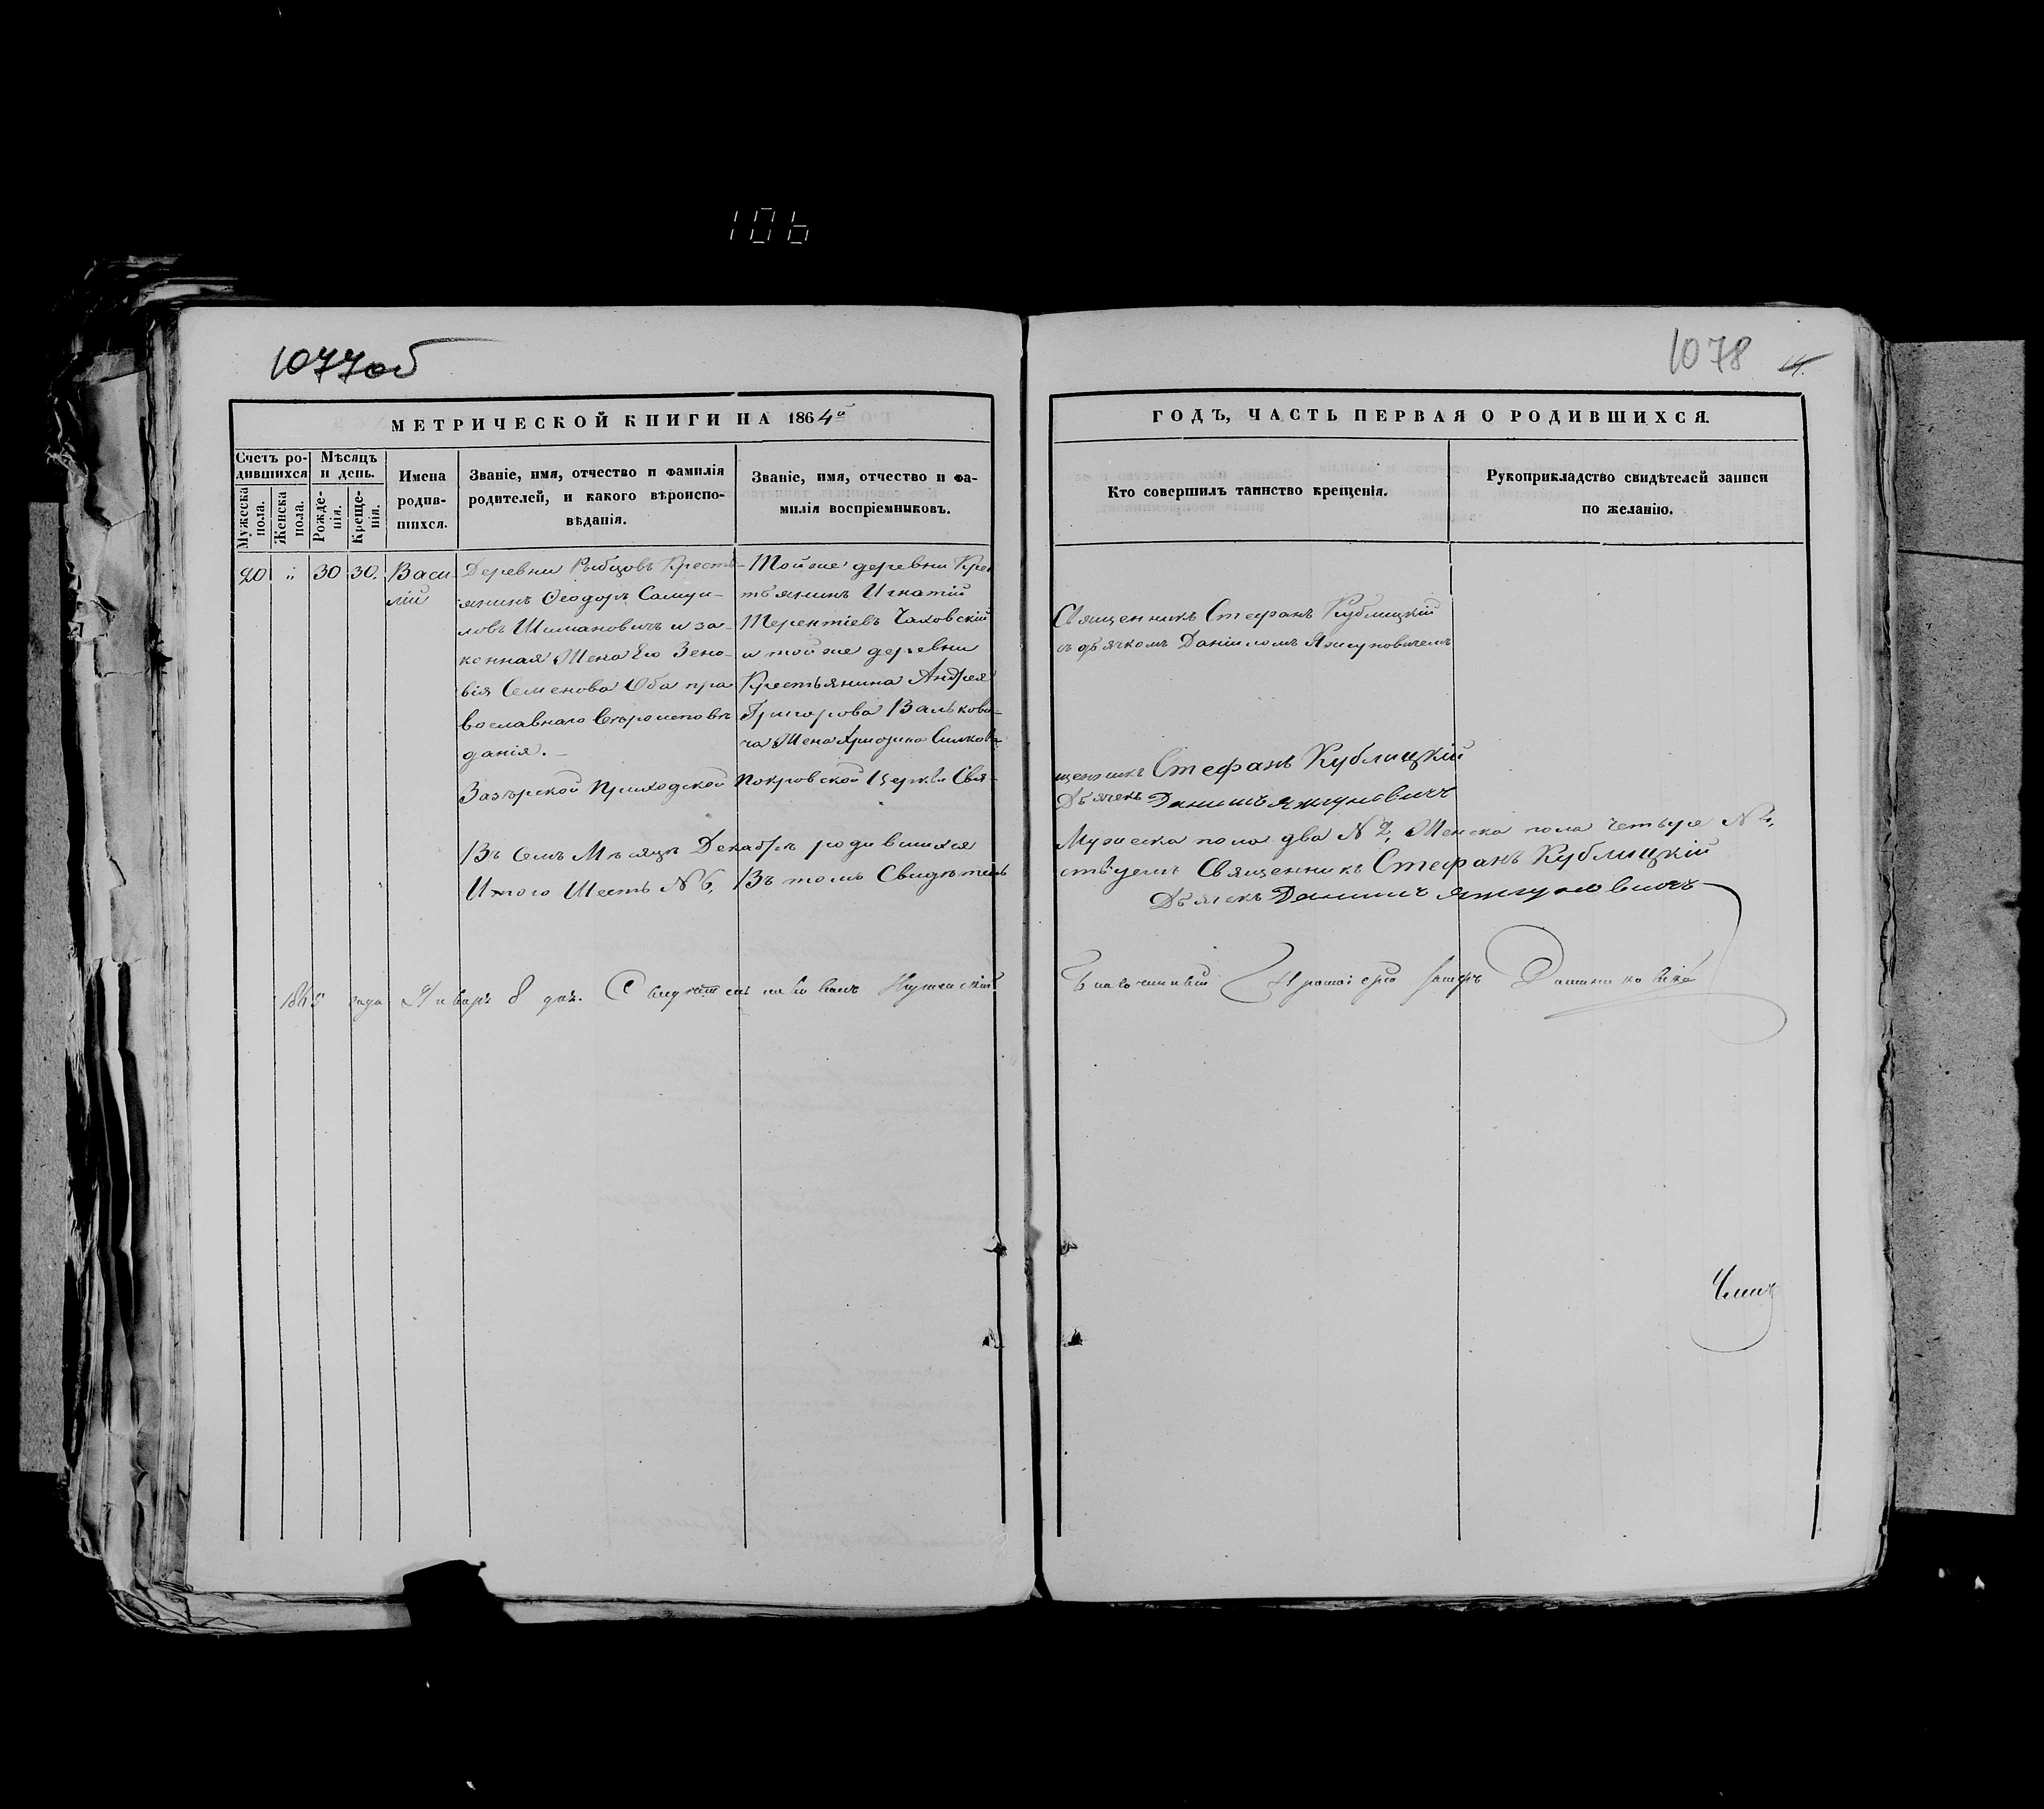 106
1077об
1078
МЕТРИЧЕСКОЙ КНИГИ НА 1864й
ГОДЪ, ЧАСТЬ ПЕРВАЯ О РОДИВШИХСЯ.
Счетъ родившихся
Мужеска пола.
Женска пола.
Мѣсяцъ и день.
Рожденія.
Крещенія.
Имена родившихся.
Званіе, имя, отчество и фамилія
родителей, и какого вѣроиспо-
вѣданія.
Званіе, имя, отчество и фа-
милія воспріемниковъ.
Кто совершилъ таинство крещенія.
Рукоприкладство свидѣтелей записи
по желанію.
20 " 30 30. Васи-
лій
Деревни Рыбцовъ Кресть-
янинъ Ѳеодоръ Самуи-
ловъ Шимановичъ и за-
конная Жена Его Зено-
вія Семенова Оба пра
вославнаго вѣроисповѣ
данія.
Той же деревни Крес
тьянинъ Игнатій
Терентіевъ Чаховскій
и той же деревни
Крестьянина Андрея
Григорова Валькови-
ча Жена
Священникъ Стефанъ Кублицкій
съ дьячкомъ Даніиломъ Яжгуновичемъ
Зазѣрской Приходской Покровской Церкви Свя-
щенникъ Стефанъ Кублицкій
Дьячекъ Даніилъ Яжгуновичъ
Въ семъ Мѣсяцѣ Декабрѣ родившихся Мужеска пола два N 2, Женска пола четыре N 4,
Итого Шесть N 6, Въ томъ Свидѣтель-
ствуемъ Священникъ Стефанъ Кублицкій
Дьячекъ Даніилъ Яжгуновичъ
1865 года Января 8 дня. Свидѣтельствовалъ
Благочинный